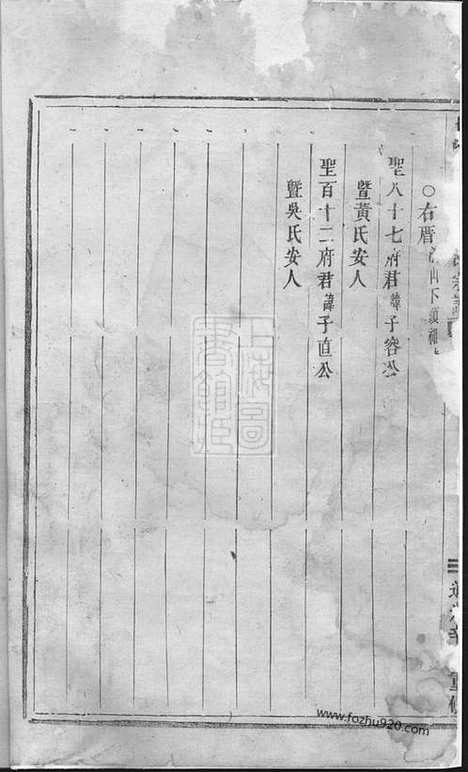 ○右厝
聖八十七府君諱子容公
暨黃氏安人
聖百十二府君諱子直公
暨吳氏安人
上海圖書館
www.fozhu920.com